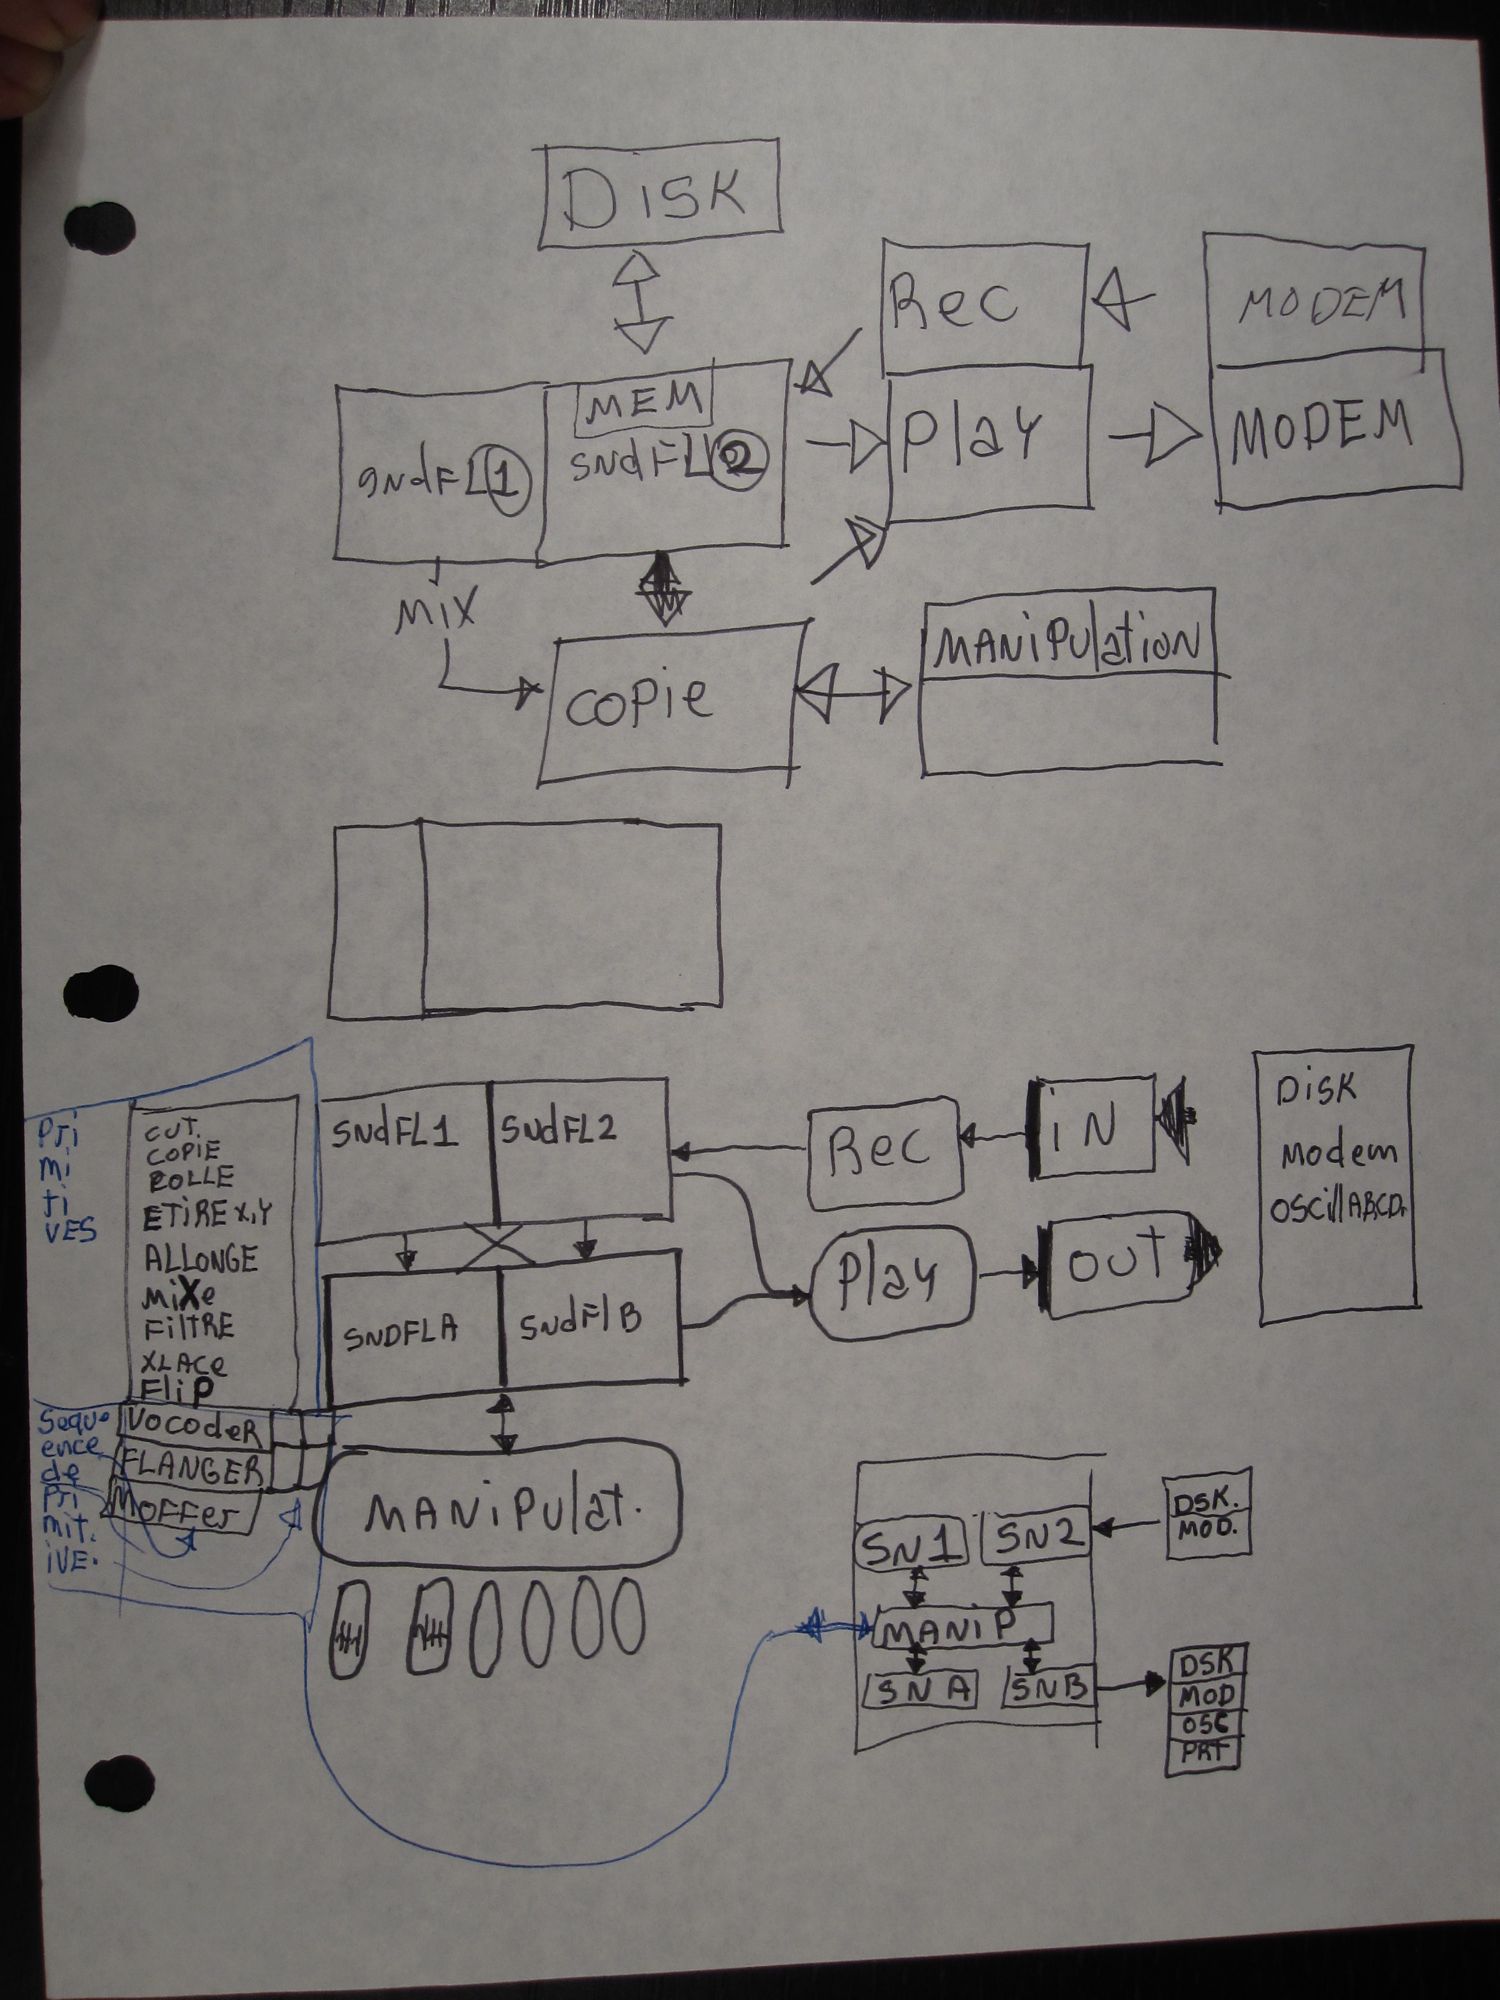 DISK
Rec
MODEM
MEM
Play
MODEM
sndFL1
sndFL2
MIX
MANIPulation
COPie
Disk
Modem
OSCillABCD
iN
Rec
SNdFL1
SNdFL2
Pri
mi
ti
VES
CUT.
COPIE
ROLLE
ETiRE X,Y
ALLONGE
MiXe
FiLTRE
XLACe
FliP
OUT
Play
SNDFLA
SNdFlB
Sequ
ence
de
Pri
mit.
iVE.
VOCODeR
FLANGER
MOFFer
MANiPulat.
SN1
SN2
DSK.
MOD.
MANiP
SNA
SNB
DSK
MOD
OSC
PRT